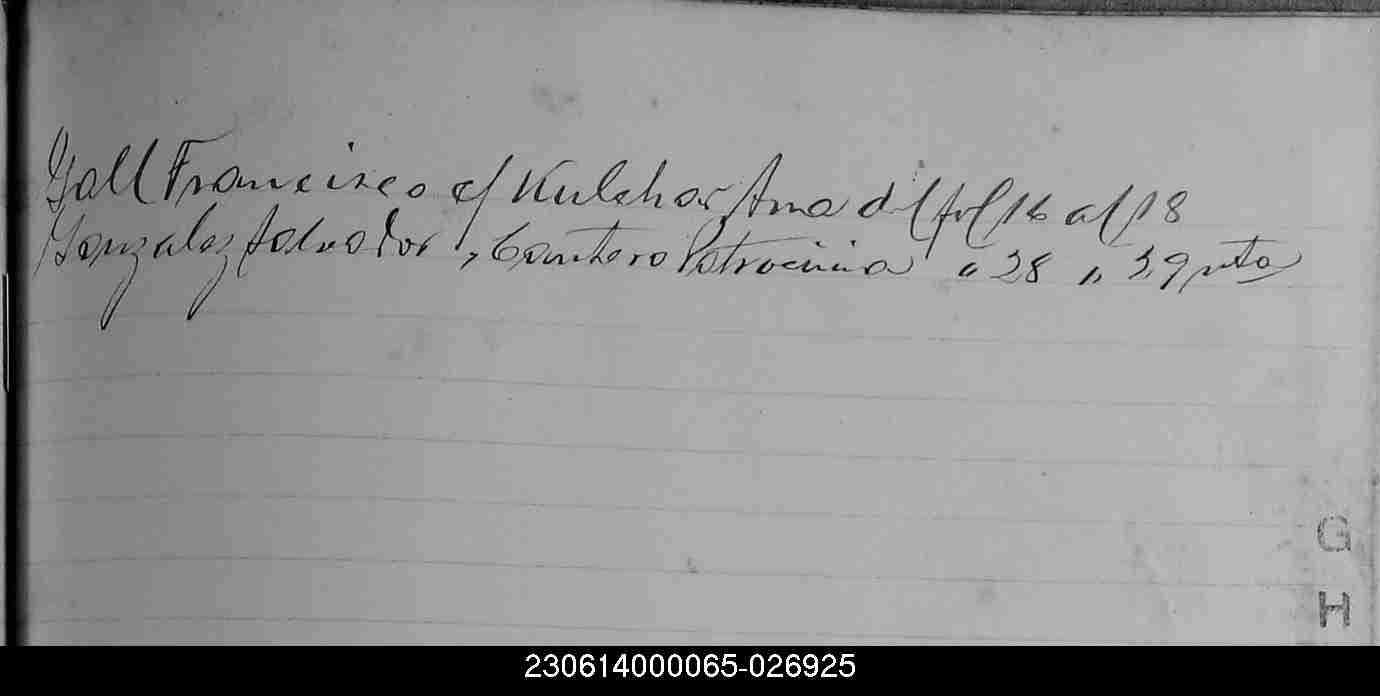 Gall Francisco c/ Kulchar Ana del fol 16 al 18
Gonzalez Salvador , Cantero Patrocinia " 28 " 29 vta
G
H
230614000065-026925